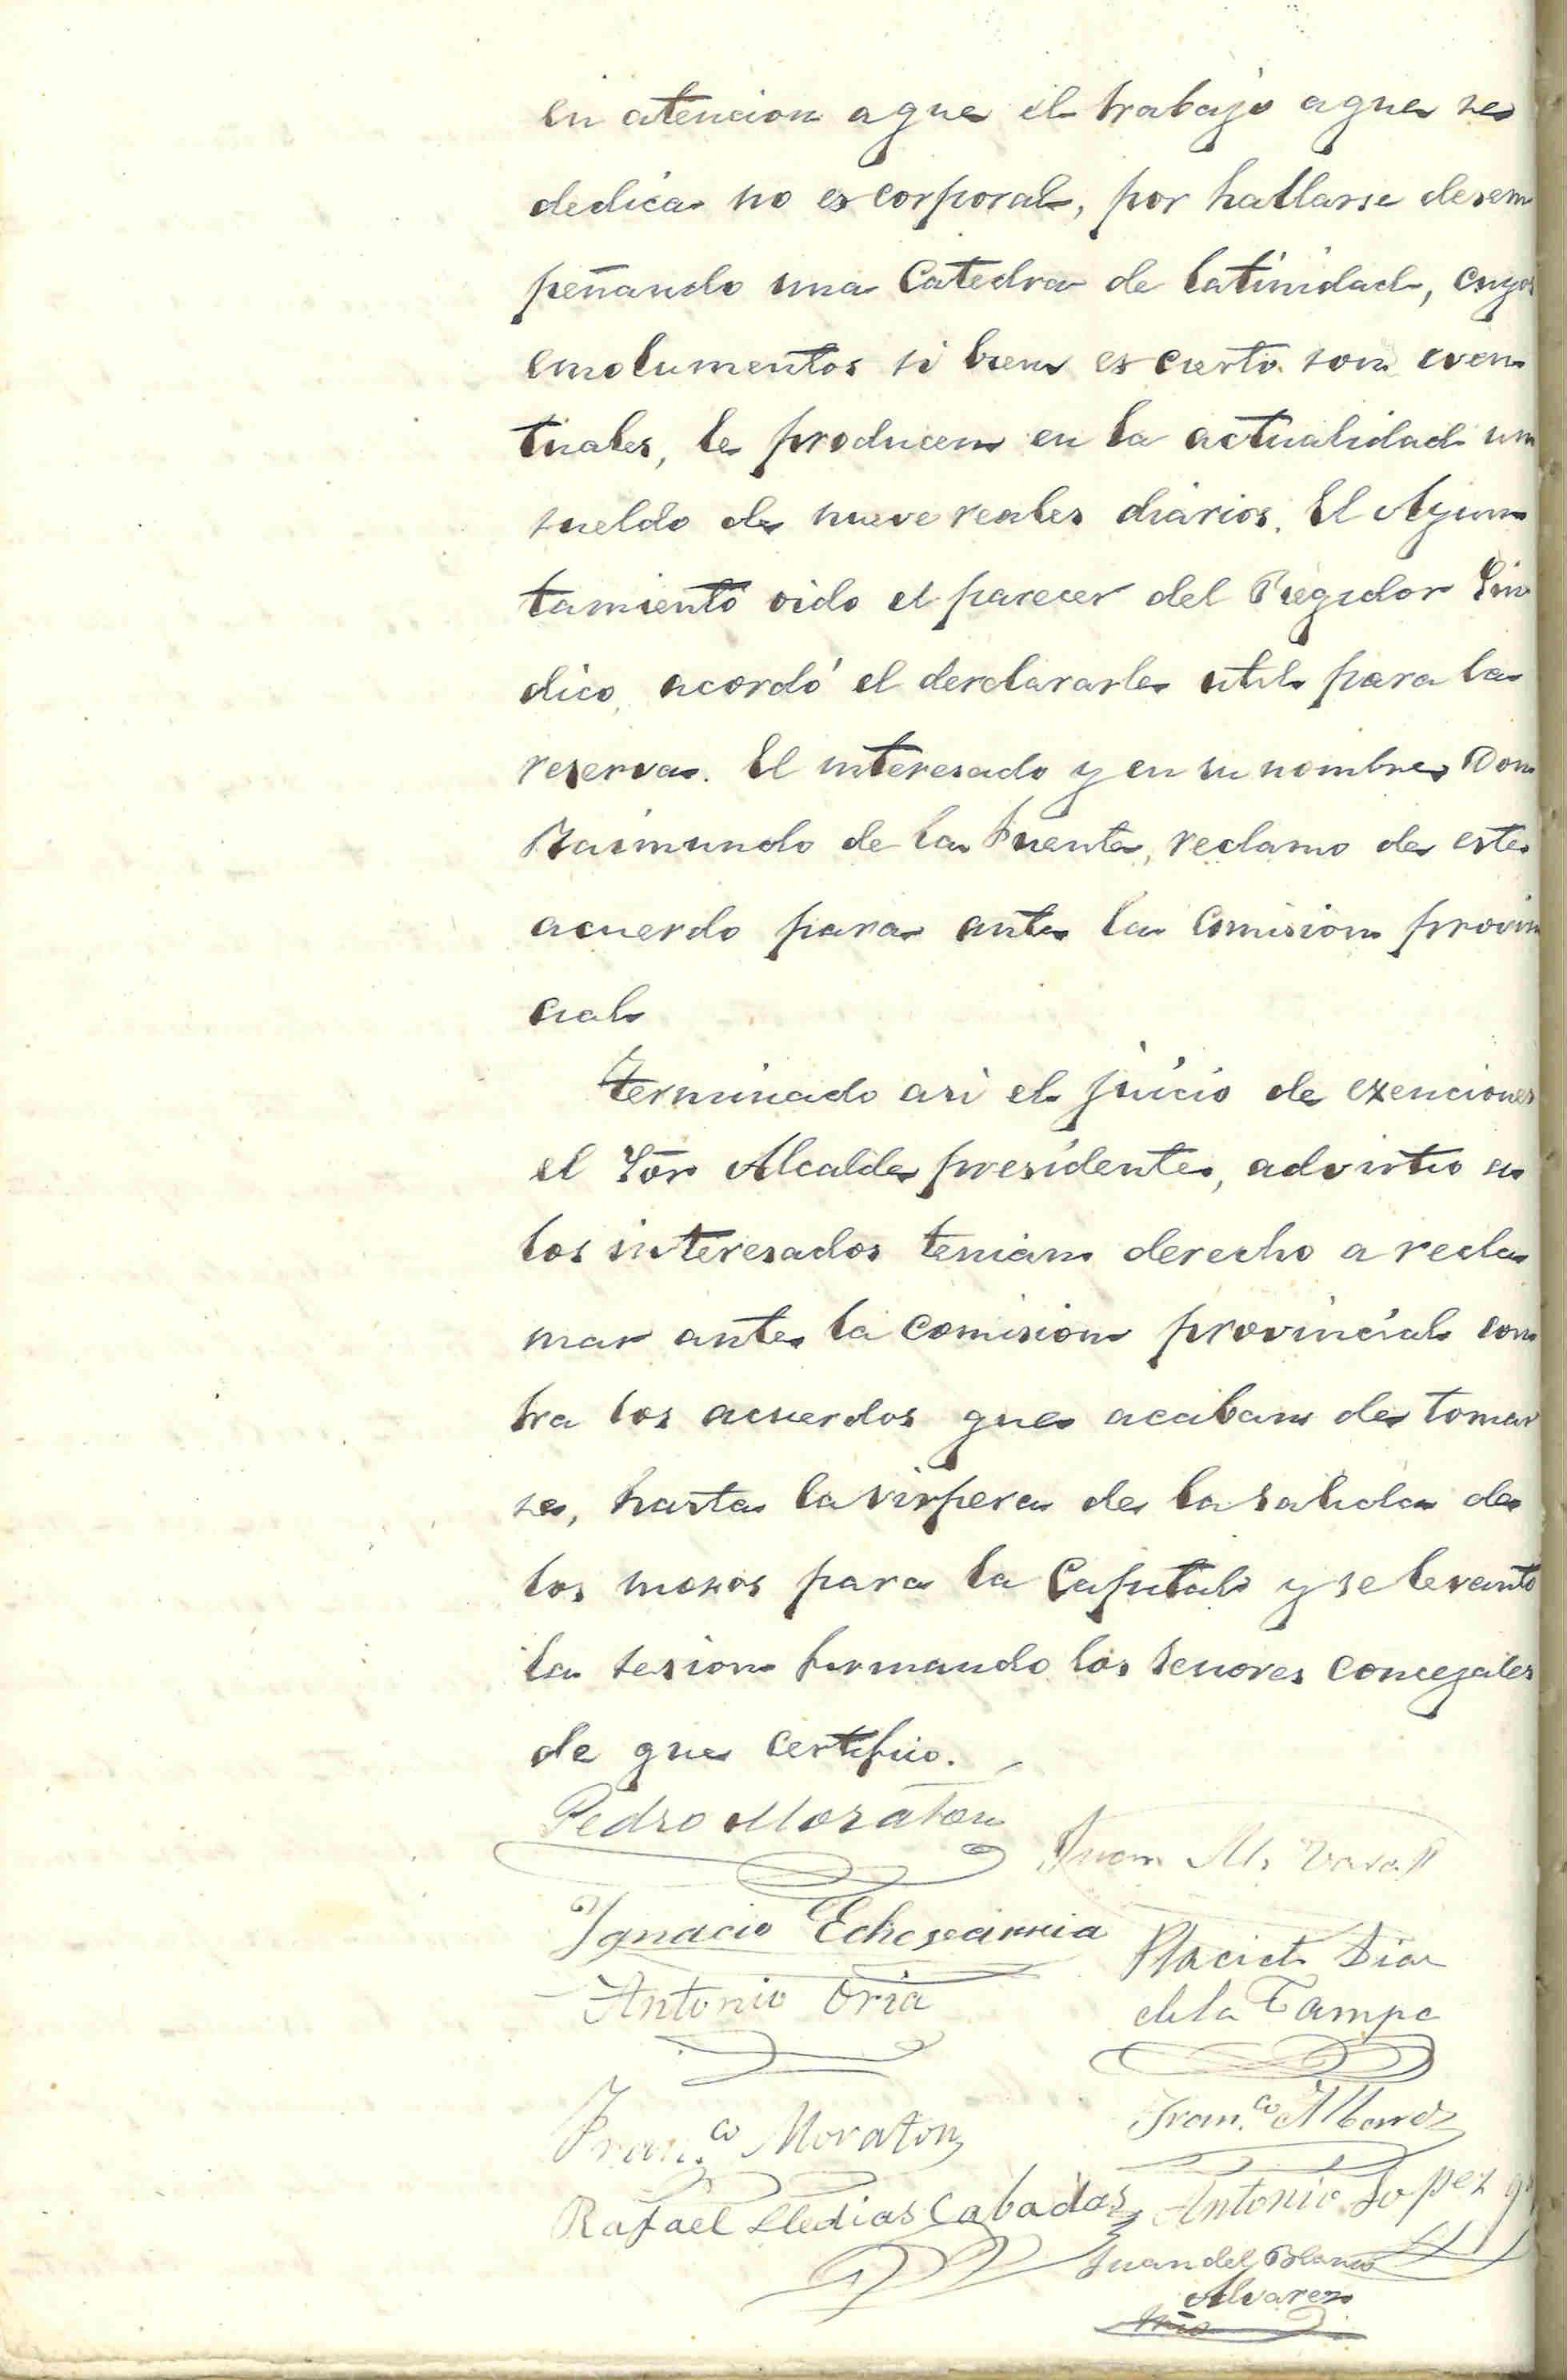 en atencion aque el trabajo aque se
dedica no es corporal, por hallarse desem
peñando una Catedra de latinidad, cuyos
emolumentos si bien es cierto son even
tuales, le producen en la actualidad un
sueldo de nueve reales diarios. El Ayun
tamiento oido el parecer del Regidor Sin
dico, acordó el derclararle util para la
reserva. El interesado y en su nombre Don
Raimundo de la Fuente, reclamo de este
acuerdo para ante la Comision provin
cial
Terminado asi el juicio de exenciones
el Sor Alcalde presidente, advirtio a
los interesados tenian derecho a recla
mar ante la comision provincial con
tra los acuerdos que acaban de tomar
se, hasta la vispera de la salida de
los mozos para la Capital y se levanto
la sesion firmando los Senores concejales
de que certifico.
Pedro Moraton
Juan M.
Ignacio Echevarria
Placido Diaz
Antonio Oria
de la Campa
Fran.co Moraton
Fran.co Albarez
Rafael Lledias Cabadas
Antonio Lopez
Juan del Blanco
Alvarez
Srio